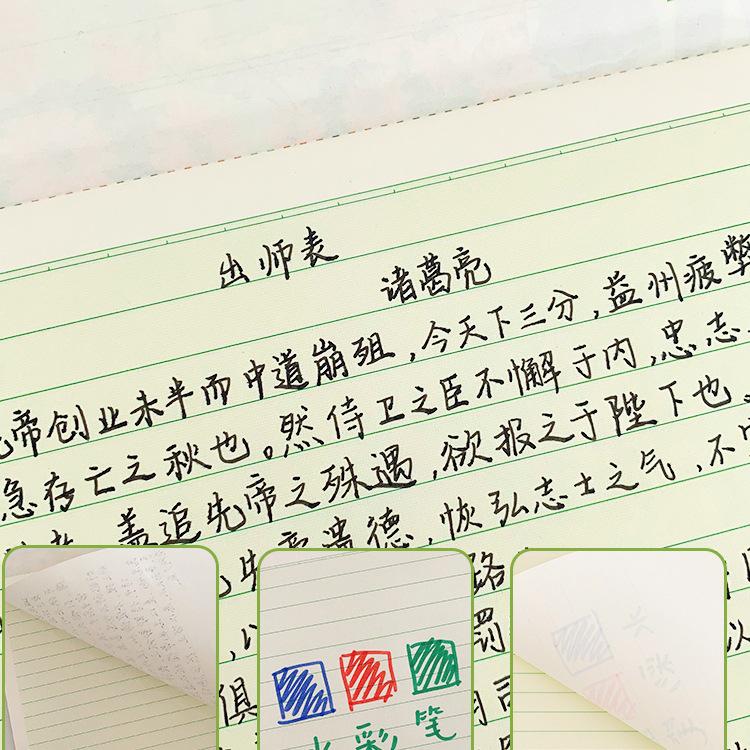 出师表
诸葛亮
帝创业未半而中道崩殂,今天下三分,益州疲弊
急存亡之秋也。然侍卫之臣不懈于内,忠志
盖追先帝之殊遇,欲报之于陛下也。
德,恢弘志士之气,不
路
罚
俱
司
以
水彩笔